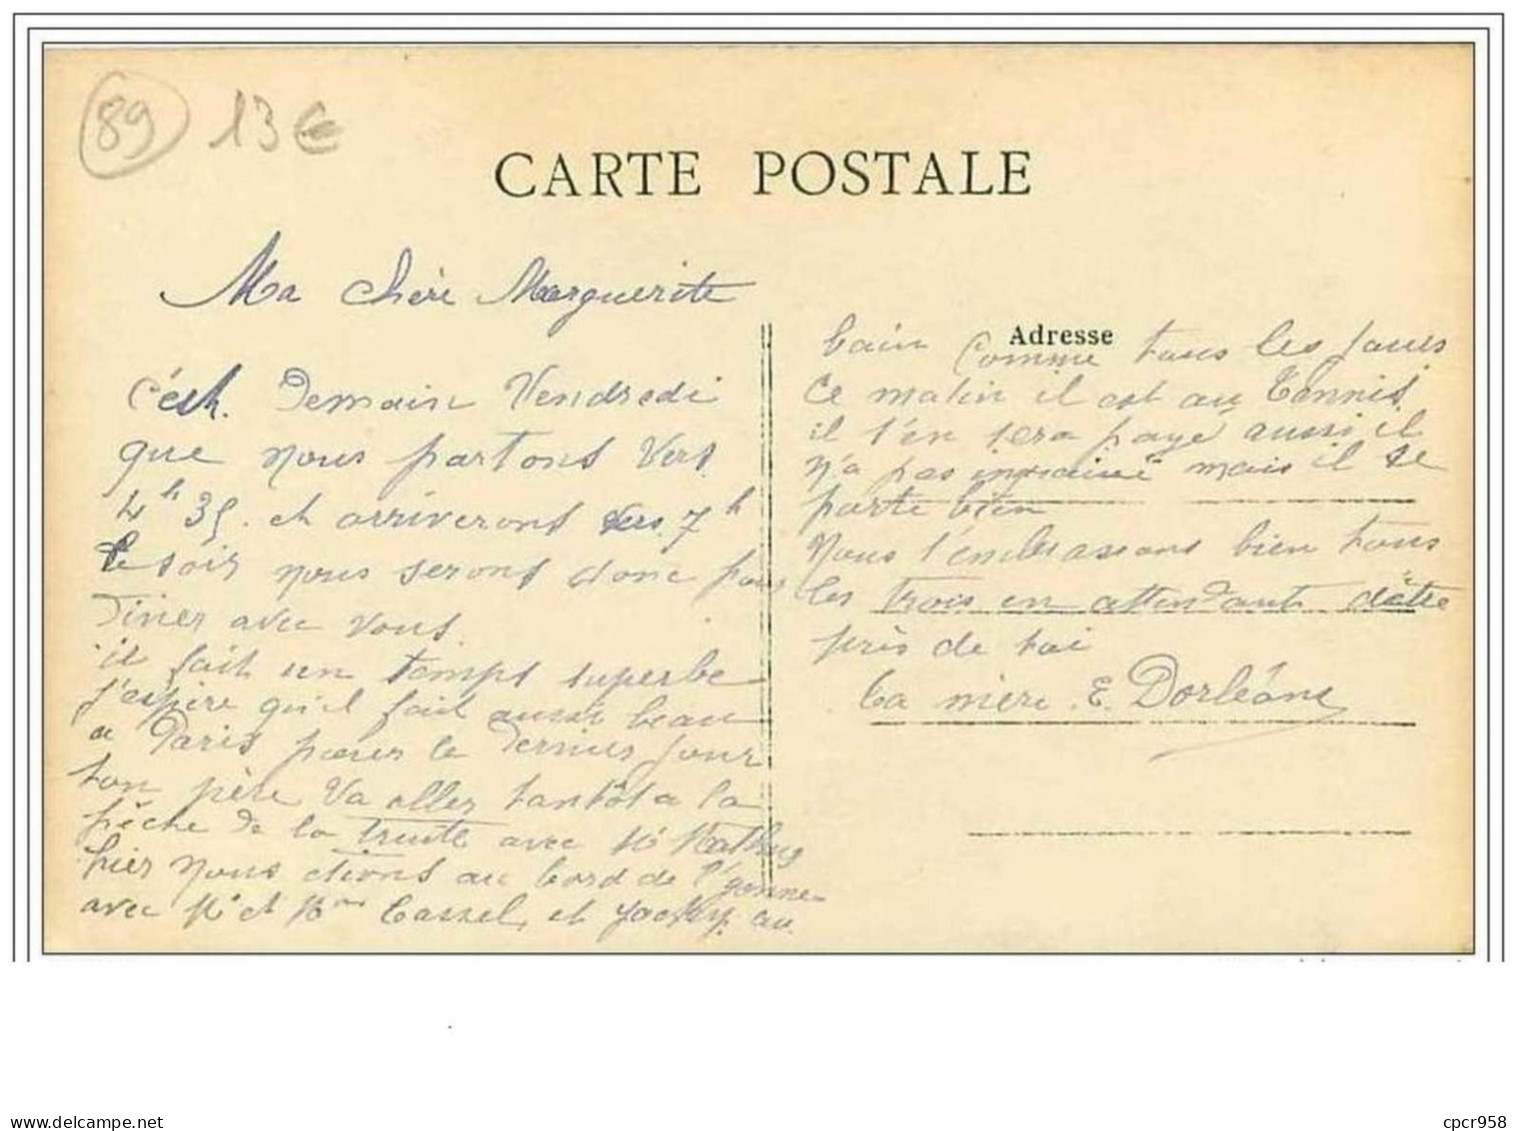 89 13€
CARTE POSTALE
Ma chère Marguerite
c'est Demain Vendredi
que nous partons vers
4h 35. et arriverons vers 7h
le soir nous serons donc pour
Diner avec vous.
il fait un temps superbe
j'espère qu'il fait aussi beau
a Paris pour le dernier jour
ton père va aller tantôt a la
pêche de la truite avec Mr
hier nous etions au bord de l'yonne
avec Mr et Mme Cassel et Jacky. au
Adresse
bain comme tous les jours
ce matin il est au Tennis
il t'en sera payé aussi il
n'a pas mais il se
porte bien
Nous t'embrassons bien tous
les trois en attendant d'être
près de toi
ta mère E. Dorléans
cpcr958